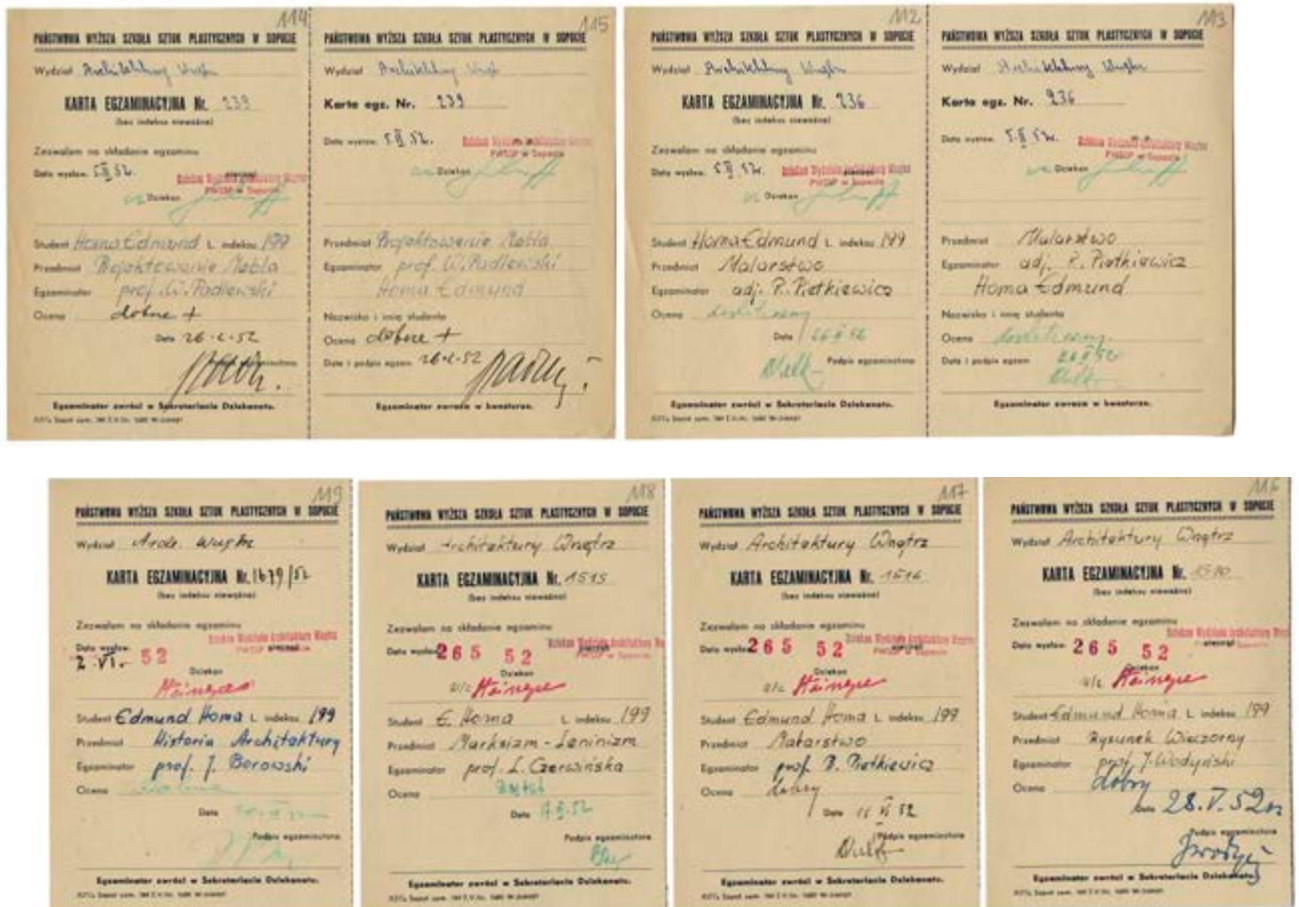 114
PAŃSTWOWA WYŻSZA SZKOŁA SZTUK PLASTYCZNYCH W SOPOCIE
Wydział Architektury Wnętrz
KARTA EGZAMINACYJNA Nr. 239
(bez indeksu nieważna)
Zezwalam na składanie egzaminu
Data wystaw. 5.II 52.
Dziekan Wydziału Architektury Wnętrz
PWSSP w Sopocie
Dziekan
Student Homa Edmund L. indeksu 199
Przedmiot Projektowanie Mebla
Egzaminator prof. W. Padlewski
Ocena dobre +
Data 26-2-52
Egzaminator zwróci w Sekretariacie Dziekanatu.
115
PAŃSTWOWA WYŻSZA SZKOŁA SZTUK PLASTYCZNYCH W SOPOCIE
Wydział Architektury Wnętrz
Karta egz. Nr. 239
Data wystaw. 5.II 52.
Dziekan Wydziału Architektury Wnętrz
PWSSP w Sopocie
Dziekan
Przedmiot Projektowanie Mebla
Egzaminator prof. W. Padlewski
Homa Edmund
Nazwisko i imię studenta
Ocena dobre +
Data i podpis egzam. 26-2-52
Egzaminator zwraca w kwesturze.
112
PAŃSTWOWA WYŻSZA SZKOŁA SZTUK PLASTYCZNYCH W SOPOCIE
Wydział Architektury Wnętrz
KARTA EGZAMINACYJNA Nr. 236
(bez indeksu nieważna)
Zezwalam na składanie egzaminu
Data wystaw. 5.II 52.
Dziekan Wydziału Architektury Wnętrz
PWSSP w Sopocie
Dziekan
Student Homa Edmund L. indeksu 199
Przedmiot Malarstwo
Egzaminator adj. R. Pietkiewicz
Ocena dostateczny
Data 26 II 52
Podpis egzaminatora
Egzaminator zwróci w Sekretariacie Dziekanatu.
113
PAŃSTWOWA WYŻSZA SZKOŁA SZTUK PLASTYCZNYCH W SOPOCIE
Wydział Architektury Wnętrz
Karta egz. Nr. 236
Data wystaw. 5.II 52.
Dziekan Wydziału Architektury Wnętrz
PWSSP w Sopocie
Dziekan
Przedmiot Malarstwo
Egzaminator adj. R. Pietkiewicz
Homa Edmund
Nazwisko i imię studenta
Ocena dostateczny
Data i podpis egzam. 26 II 52
Egzaminator zwraca w kwesturze.
119
PAŃSTWOWA WYŻSZA SZKOŁA SZTUK PLASTYCZNYCH W SOPOCIE
Wydział Arch. Wnętrz
KARTA EGZAMINACYJNA Nr. 1679/52
(bez indeksu nieważna)
Zezwalam na składanie egzaminu
Dziekan Wydziału Architektury Wnętrz
Data wystaw. 2.VI. 52
Dziekan
Student Edmund Homa L. indeksu 199
Przedmiot Historia Architektury
Egzaminator prof. J. Borowski
Ocena
Data
Podpis egzaminatora
Egzaminator zwróci w Sekretariacie Dziekanatu.
118
PAŃSTWOWA WYŻSZA SZKOŁA SZTUK PLASTYCZNYCH W SOPOCIE
Wydział Architektury Wnętrz
KARTA EGZAMINACYJNA Nr. 1515
(bez indeksu nieważna)
Zezwalam na składanie egzaminu
Dziekan Wydziału Architektury
Data wystaw. 26 5 52
Dziekan
Student E. Homa L. indeksu 199
Przedmiot Marksizm-Leninizm
Egzaminator prof. L. Czerwińska
Ocena
Data
Podpis egzaminatora
Egzaminator zwróci w Sekretariacie Dziekanatu.
117
PAŃSTWOWA WYŻSZA SZKOŁA SZTUK PLASTYCZNYCH W SOPOCIE
Wydział Architektury Wnętrz
KARTA EGZAMINACYJNA Nr. 1516
(bez indeksu nieważna)
Zezwalam na składanie egzaminu
Dziekan Wydziału Architektury Wnętrz
Data wystaw. 26 5 52
Dziekan
Student Edmund Homa L. indeksu 199
Przedmiot Malarstwo
Egzaminator prof. R. Pietkiewicz
Ocena dobry
Data 11 VI 52
Podpis egzaminatora
Egzaminator zwróci w Sekretariacie Dziekanatu.
116
PAŃSTWOWA WYŻSZA SZKOŁA SZTUK PLASTYCZNYCH W SOPOCIE
Wydział Architektury Wnętrz
KARTA EGZAMINACYJNA Nr.
(bez indeksu nieważna)
Zezwalam na składanie egzaminu
Dziekan Wydziału Architektury
Data wystaw. 26 5 52
Dziekan
Student Edmund Homa L. indeksu 199
Przedmiot Rysunek Wieczorny
Egzaminator prof. J. Wodyński
Ocena dobry
Data 28.V.52
Podpis egzaminatora
Egzaminator zwróci w Sekretariacie Dziekanatu.